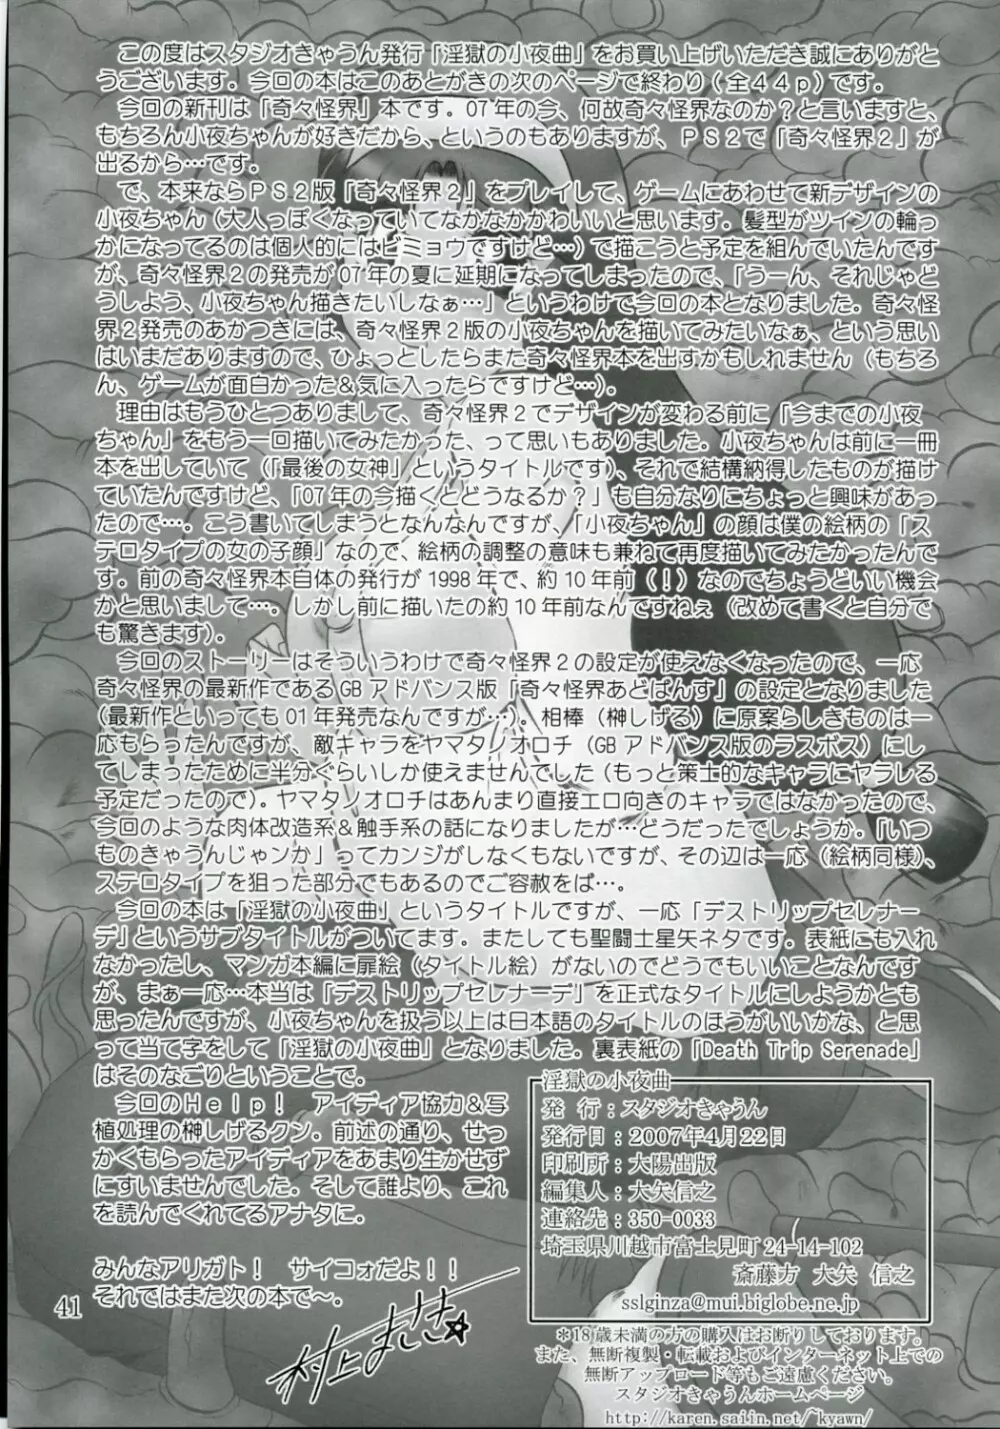 この度はスタジオきゃうん発行「淫獄の小夜曲」をお買い上げいただき誠にありがと
うございます。今回の本はこのあとがきの次のページで終わり(全44p)です。
今回の新刊は「奇々怪界」本です。07年の今、何故奇々怪界なのか？と言いますと、
もちろん小夜ちゃんが好きだから、というのもありますが、PS2で「奇々怪界2」が
出るから…です。
で、本来ならPS2版「奇々怪界2」をプレイして、ゲームにあわせて新デザインの
小夜ちゃん(大人っぽくなっていてなかなかかわいいと思います。髪型がツインの輪っ
かになってるのは個人的にはビミョウですけど…)で描こうと予定を組んでいたんです
が、奇々怪界2の発売が07年の夏に延期になってしまったので、「うーん、それじゃど
うしよう、小夜ちゃん描きたいしなぁ…」というわけで今回の本となりました。奇々怪
界2発売のあかつきには、奇々怪界2版の小夜ちゃんを描いてみたいなぁ、という思い
はいまだありますので、ひょっとしたらまた奇々怪界本を出すかもしれません(もちろ
ん、ゲームが面白かった&気に入ったらですけど…)。
理由はもうひとつありまして、奇々怪界2でデザインが変わる前に「今までの小夜
ちゃん」をもう一回描いてみたかった、って思いもありました。小夜ちゃんは前に一冊
本を出していて(「最後の女神」というタイトルです)、それで結構納得したものが描け
ていたんですけど、「07年の今描くとどうなるか？」も自分なりにちょっと興味があっ
たので…。こう書いてしまうとなんなんですが、「小夜ちゃん」の顔は僕の絵柄の「ス
テロタイプの女の子顔」なので、絵柄の調整の意味も兼ねて再度描いてみたかったんで
す。前の奇々怪界本自体の発行が1998年で、約10年前(！)なのでちょうどいい機会
かと思いまして…。しかし前に描いたの約10年前なんですねぇ(改めて書くと自分で
も驚きます)。
今回のストーリーはそういうわけで奇々怪界2の設定が使えなくなったので、一応
奇々怪界の最新作であるGBアドバンス版「奇々怪界あどばんす」の設定となりました
(最新作といっても01年発売なんですが…)。相棒(榊しげる)に原案らしきものは一
応もらったんですが、敵キャラをヤマタノオロチ(GBアドバンス版のラスボス)にし
てしまったために半分ぐらいしか使えませんでした(もっと策士的なキャラにヤラレる
予定だったので)。ヤマタノオロチはあんまり直接エロ向きのキャラではなかったので、
今回のような肉体改造系&触手系の話になりましたが…どうだったでしょうか。「いつ
ものきゃうんじゃンか」ってカンジがしなくもないですが、その辺は一応(絵柄同様)、
ステロタイプを狙った部分でもあるのでご容赦をば…。
今回の本は「淫獄の小夜曲」というタイトルですが、一応「デストリップセレナー
デ」というサブタイトルがついてます。またしても聖闘士星矢ネタです。表紙にも入れ
なかったし、マンガ本編に扉絵(タイトル絵)がないのでどうでもいいことなんです
が、まぁ一応…本当は「デストリップセレナーデ」を正式なタイトルにしようかとも
思ったんですが、小夜ちゃんを扱う以上は日本語のタイトルのほうがいいかな、と思
って当て字をして「淫獄の小夜曲」となりました。裏表紙の「Death Trip Serenade」
はそのなごりということで。
今回のHelp！ アイディア協力&写
植処理の榊しげるクン。前述の通り、せっ
かくもらったアイディアをあまり生かせず
にすいませんでした。そして誰より、これ
を読んでくれてるアナタに。
みんなアリガト！ サイコォだよ！！
それではまた次の本で〜。
村上まさき☆
41
淫獄の小夜曲
発 行：スタジオきゃうん
発行日：2007年4月22日
印刷所：大陽出版
編集人：大矢信之
連絡先：350-0033
埼玉県川越市富士見町24-14-102
斎藤方 大矢 信之
sslginza@mui.biglobe.ne.jp
*18歳未満の方の購入はお断りしております。
また、無断複製・転載およびインターネット上での
無断アップロード等もご遠慮ください。
スタジオきゃうんホームページ
http://karen.saiin.net/~kyawn/